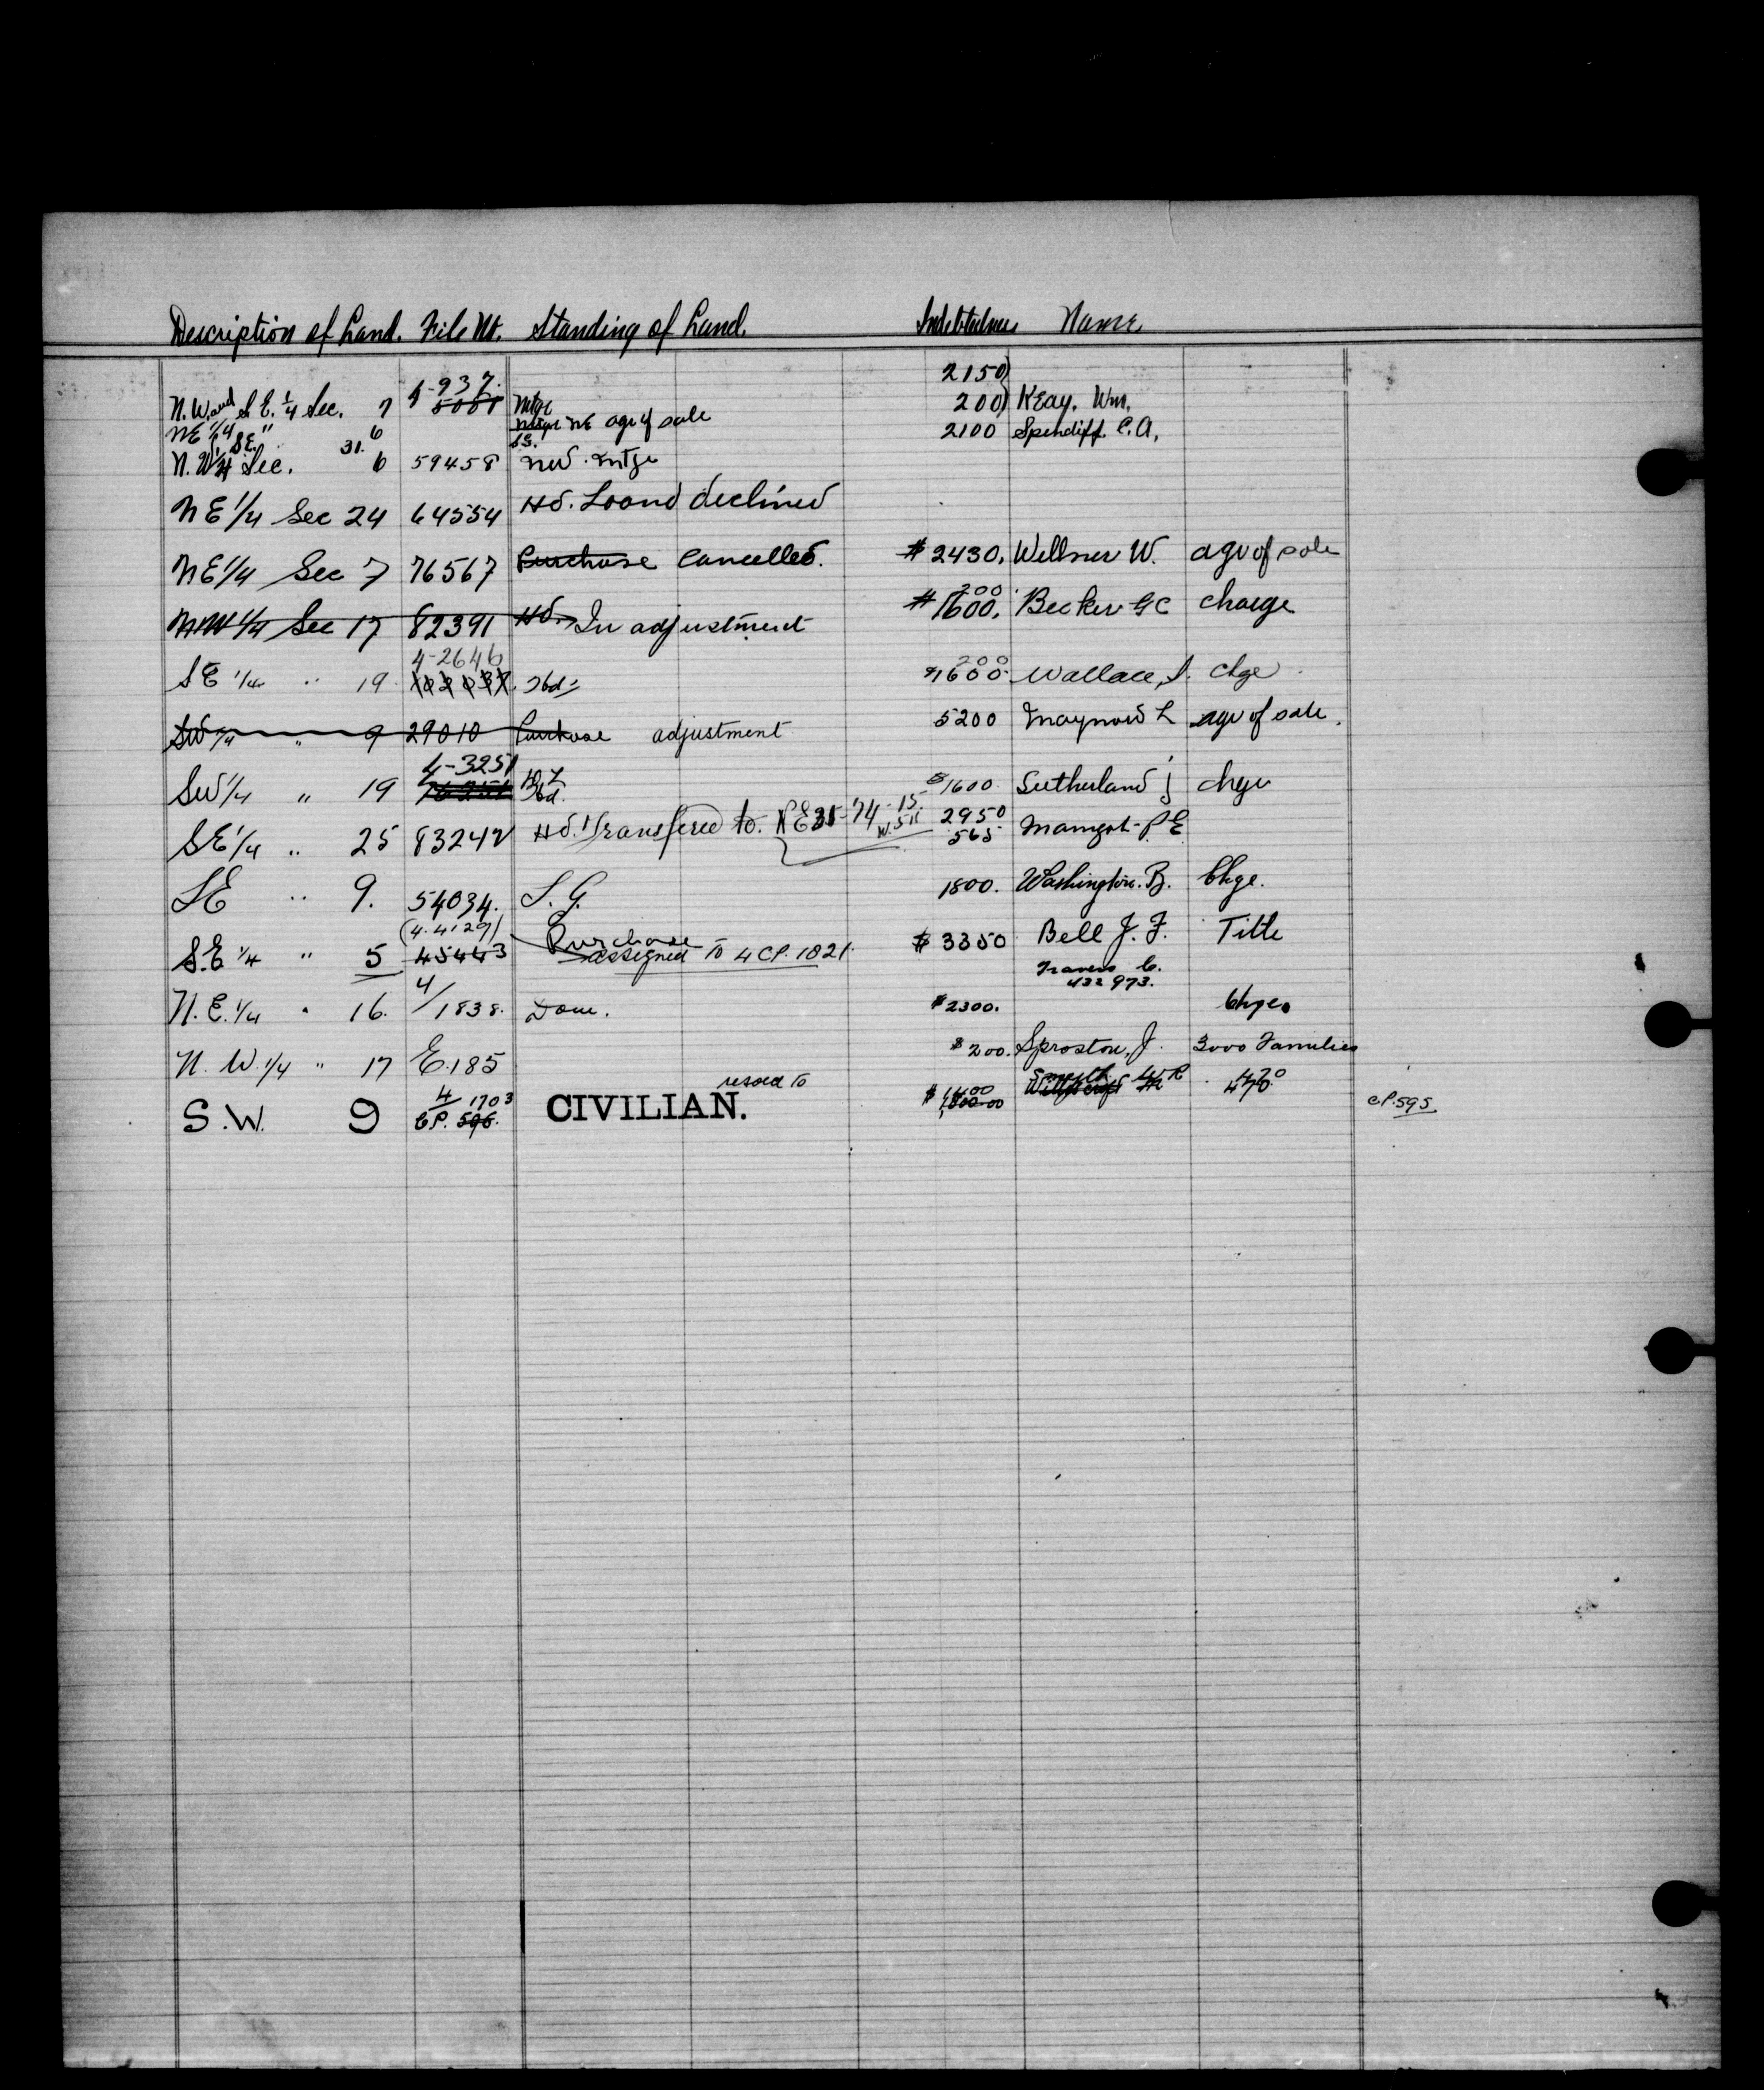 Description of Land. File No. Standing of Land. Indebtedness Name
N.W. and S.E. 1/4 Sec. 7 4-937. 5051 Mtge 2150) 200) Keay, Wm.
NE 1/4 " 6 NE agr of sale 2100 Spendiff. C.A.
S.E. 31. S.G.
N.W 1/4 Sec. 6 59458 Mtge
NE 1/4 Sec 24 64554 Hd. Loand declined
NE 1/4 Sec 7 76567 Purchase Cancelled. $2430. Wellner W. agr of sale
NW 1/4 Sec 17 82391 Hd. In adjustment 200 $1600. Becker G C charge
SE 1/4 " 19 4-2646 Hd. 200 $1600. Wallace, S. Chge
SW 1/4 " 9 29010 Purchase adjustment 5200 Maynard L agr of sale.
SW 1/4 " 19 4-3251 Hd. $1600. Sutherland J chge
SE 1/4 " 25 83242 Hd. Transfered to. NE 31-74-15. W.5M 2950 565 P E
SE " 9. 54034. S.G. 1800. Washington. B. Chge.
S.E 1/4 " 5 (4.4129) 45443 Purchase assigned To 4 CP. 1821 $3350 Bell J. F. Title
Travers C. 432973.
N.E. 1/4 " 16. 4/1838. Dom. $2300. Chge.
N.W. 1/4 " 17 E.185 $200. Sproston, J. 3000 Families
S.W. 9 4/1703 C.P. 595. resold To CIVILIAN. $1400 1800.00 Smith W R 470 CP.595.